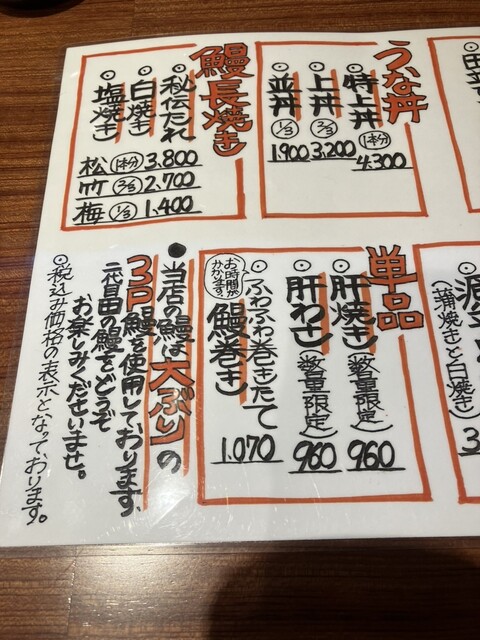 うな丼
特上丼
1本分
4.300
上丼
2/3
3,200
並丼
1/3
1.900
鰻長焼き
秘伝たれ
白焼き
塩焼き
松 1本分 3.800
竹 2/3 2.700
梅 1/3 1.400
(蒲焼きと白焼き)
単品
肝焼き(数量限定)
960
肝わさ(数量限定)
960
ふわふわ巻きたて
鰻巻き
お時間がかかります。
1.070
●当店の鰻は大ぶりの
3P鰻を使用しております。
二代目の鰻をどうぞ
お楽しみくださいませ。
税込み価格の表示となっております。